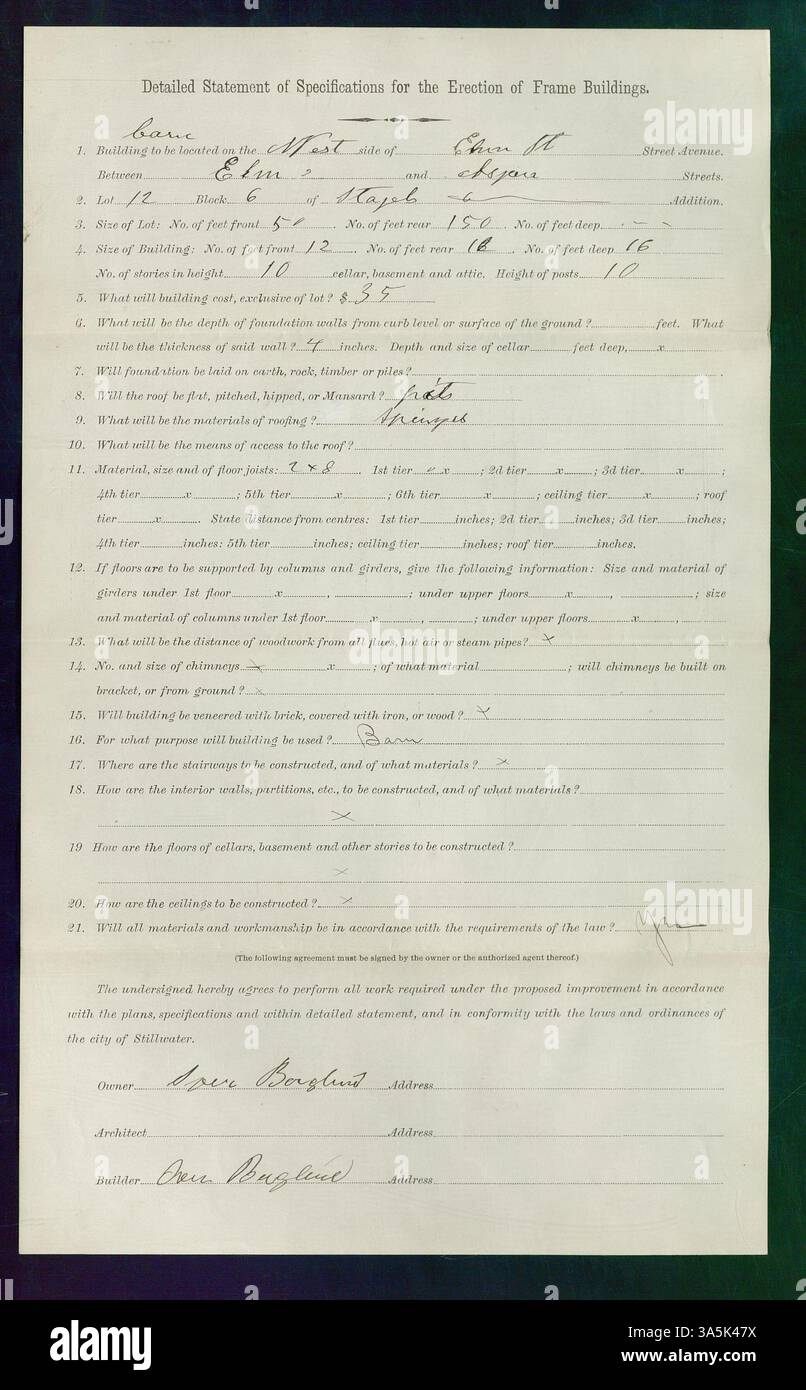 Detailed Statement of Specifications for the Erection of Frame Buildings.
barn
1. Building to be located on the West side of Elm St Street Avenue.
Between Elm and Streets.
2. Lot 12 Block 6 of Addition.
3. Size of Lot: No. of feet front 50 . No. of feet rear 150 . No. of feet deep - -
4. Size of Building: No. of feet front 12 . No. of feet rear . No. of feet deep 16
No. of stories in height 10 cellar, basement and attic. Height of posts 10
5. What will building cost, exclusive of lot? $ 35
6. What will be the depth of foundation walls from curb level or surface of the ground? feet. What
will be the thickness of said wall? 4 inches. Depth and size of cellar feet deep, x
7. Will foundation be laid on earth, rock, timber or piles? .
8. Will the roof be flat, pitched, hipped, or Mansard?
9. What will be the materials of roofing?
10. What will be the means of access to the roof?
11. Material, size and of floor joists: 2 x 8 . 1st tier x ; 2d tier x ; 3d tier x ;
4th tier x ; 5th tier x ; 6th tier x ; ceiling tier x ; roof
tier x . State distance from centres: 1st tier inches; 2d tier inches; 3d tier inches;
4th tier inches: 5th tier inches; ceiling tier inches; roof tier inches.
12. If floors are to be supported by columns and girders, give the following information: Size and material of
girders under 1st floor x , ; under upper floors x , ; size
and material of columns under 1st floor x , ; under upper floors x ,
13. What will be the distance of woodwork from all flues, hot air or steam pipes? x
14. No. and size of chimneys x x ; of what material ; will chimneys be built on
bracket, or from ground? x
15. Will building be veneered with brick, covered with iron, or wood? x
16. For what purpose will building be used? Barn
17. Where are the stairways to be constructed, and of what materials? x
18. How are the interior walls, partitions, etc., to be constructed, and of what materials?
x
19 How are the floors of cellars, basement and other stories to be constructed?
x
20. How are the ceilings to be constructed? x
21. Will all materials and workmanship be in accordance with the requirements of the law? Yes
(The following agreement must be signed by the owner or the authorized agent thereof.)
The undersigned hereby agrees to perform all work required under the proposed improvement in accordance
with the plans, specifications and within detailed statement, and in conformity with the laws and ordinances of
the city of Stillwater.
Owner Address
Architect Address
Builder Address
alamy
Image ID: 3A5K47X
www.alamy.com